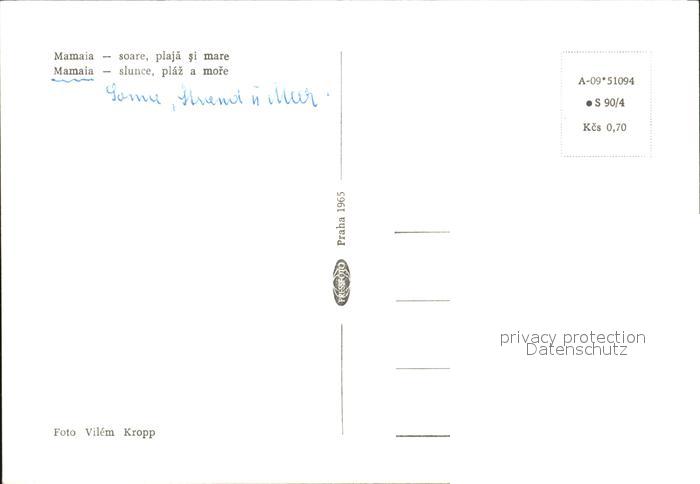 Mamaia — soare, plajă și mare
Mamaia — slunce, pláž a moře
Sonne, Strand u Meer.
A-09*51094
● S 90/4
Kčs 0,70
Praha 1965
PRESSFOTO
privacy protection
Datenschutz
Foto Vilém Kropp